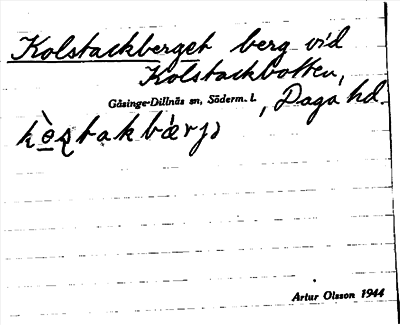 Kolstackberget berg vid
Kolstackbotten,
Gåsinge-Dillnäs sn, Söderm. l. , Daga hd.
Artur Olsson 1944